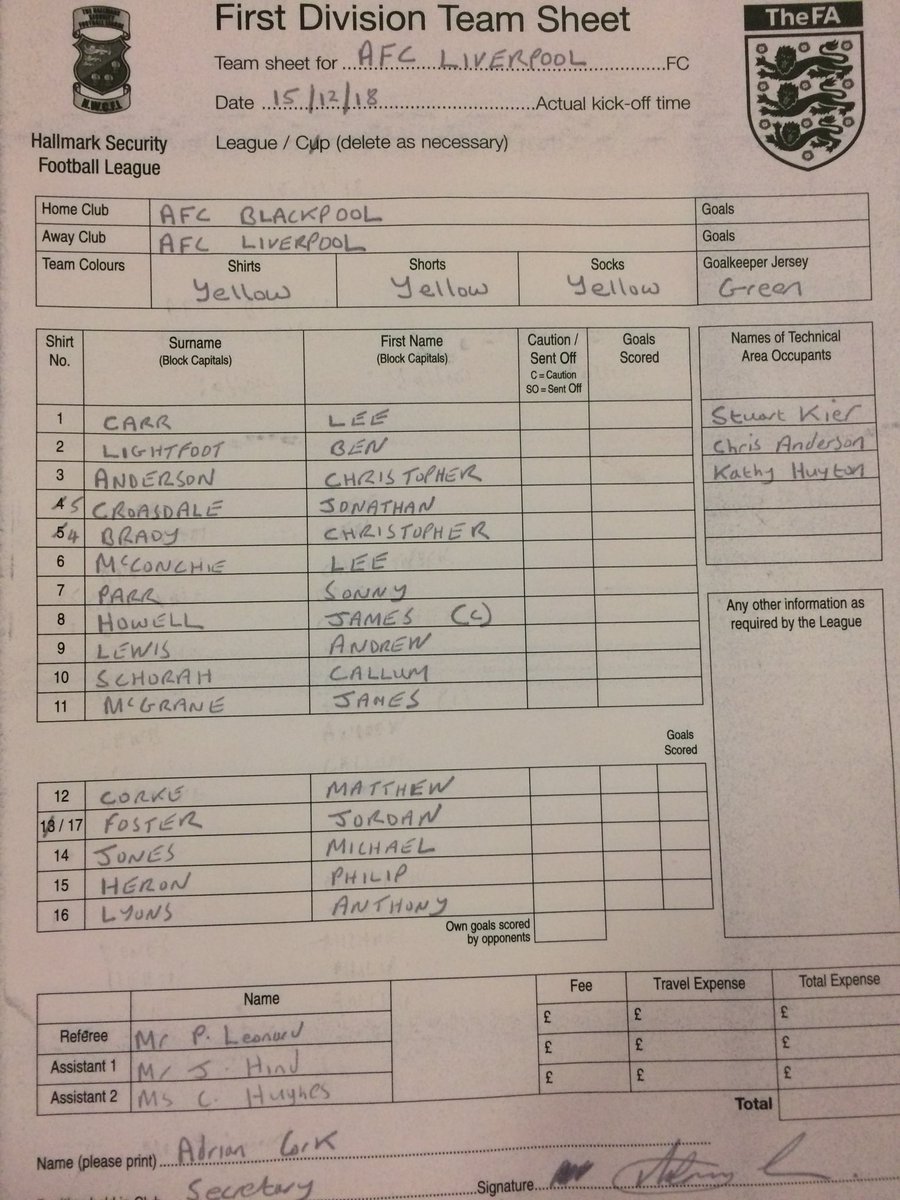 THE HALLMARK SECURITY FOOTBALL LEAGUE
N.W.C.F.L
First Division Team Sheet
TheFA
Team sheet for AFC LIVERPOOL FC
Date 15/12/18 Actual kick-off time
Hallmark Security
Football League
League / Cup (delete as necessary)
Home Club AFC BLACKPOOL Goals
Away Club AFC LIVERPOOL Goals
Team Colours Shirts Shorts Socks Goalkeeper Jersey
Yellow Yellow Yellow Green
Shirt No. Surname (Block Capitals) First Name (Block Capitals) Caution / Sent Off C = Caution SO = Sent Off Goals Scored Names of Technical Area Occupants
1 CARR LEE Stuart Kier
2 LIGHTFOOT BEN Chris Anderson
3 ANDERSON CHRISTOPHER Kathy Huyton
4 5 CROASDALE JONATHAN
5 4 BRADY CHRISTOPHER
6 McCONCHIE LEE
7 PARR SONNY
8 HOWELL JAMES (C) Any other information as required by the League
9 LEWIS ANDREW
10 SCHORAH CALLUM
11 McGRANE JAMES
Goals Scored
12 CORKE MATTHEW
13 / 17 FOSTER JORDAN
14 JONES MICHAEL
15 HERON PHILIP
16 LYONS ANTHONY
Own goals scored by opponents
Name Fee Travel Expense Total Expense
Referee Mr P. Leonard £ £ £
Assistant 1 Mr J. Hind £ £ £
Assistant 2 Ms C. Hughes £ £ £
Total
Name (please print) Adrian Cork
Secretary Signature